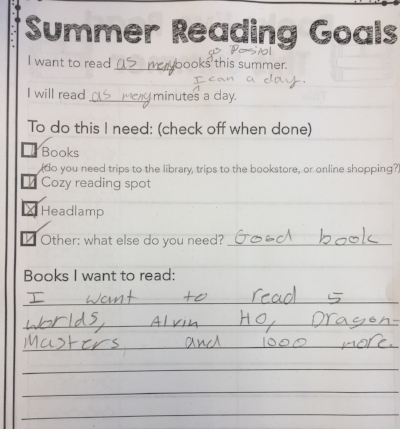 Summer Reading Goals
as Possiol
I want to read as meny books this summer.
I can a day.
I will read as meny minutes a day.
To do this I need: (check off when done)
Books
(do you need trips to the library, trips to the bookstore, or online shopping?)
Cozy reading spot
Headlamp
Other: what else do you need? Good book
Books I want to read:
I want to read 5
Worlds, Alvin HO, Dragon-
Masters and 1000 more.